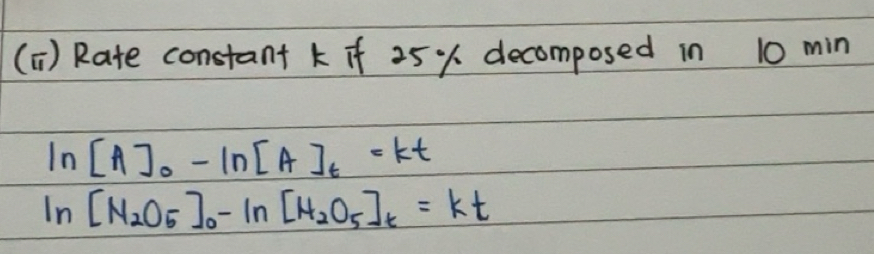 (ii) Rate constant k if 25% decomposed in 10 min
ln [A]₀ - ln[A]ₜ = kt
ln [N₂O₅]₀ - ln [H₂O₅]ₜ = kt